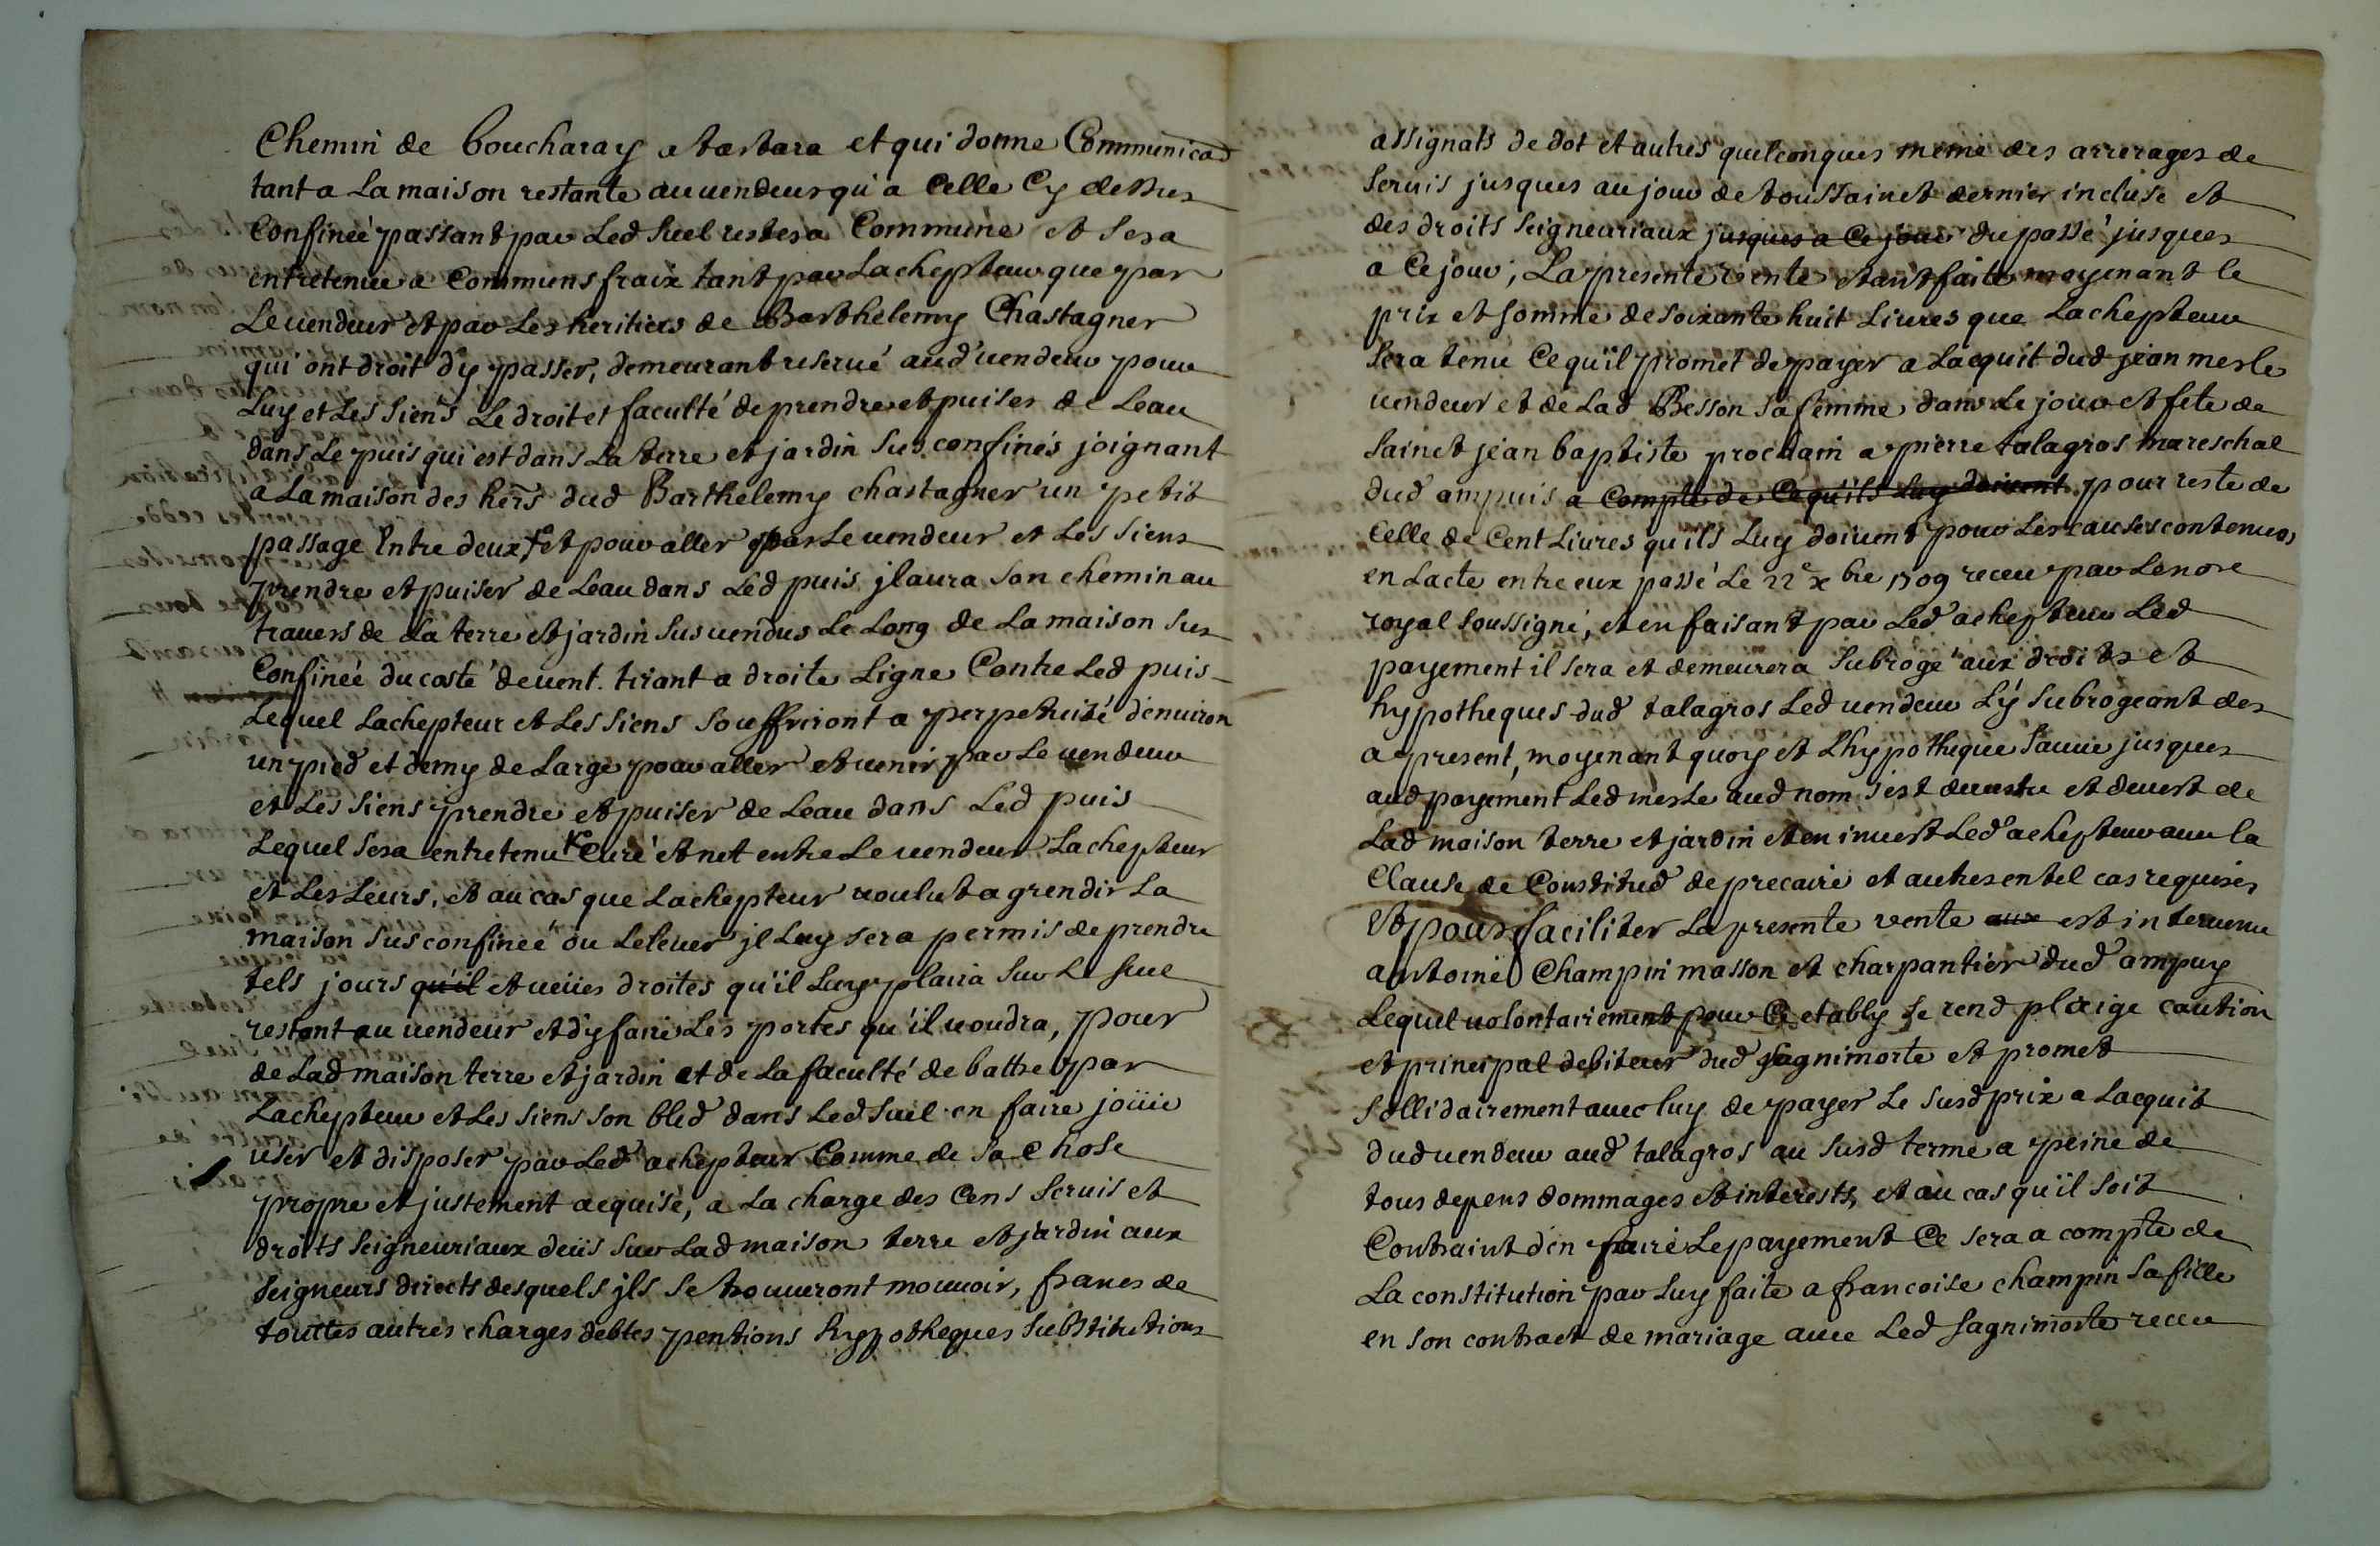 Chemin de boucharay a tartara et qui donne Communicaõn
tant a La maison restante au uendeur qu'a Celle Cy dessus
Confineé passant par Led suel restera Commune et sera
entretenue a Communs fraix tant par Lachepteur que par
Le uendeur et par Les heritiers de Barthelemy Chastagner
qui ont droit d'y passer, demeurant reserué aud uendeur pour
Luy et Les Siens Le droit et faculté de prendre et puiser de Leau
dans Le puis qui est dans La terre et jardin sus confinés joignant
a La maison des hers dud Barthelemy chastagner un petit
passage Entre deux, et pour aller par Le uendeur et Les Siens
prendre et puiser de Leau dans Led puis jl aura son chemin au
trauers de La terre et jardin sus uendus Le Long de La maison sus
Confineé du costé deuent tirant a droite Ligne Contre Led puis
Lequel Lachepteur et Les Siens Souffriront a perpetuité d'enuiron
un pied et demy de Large pour aller et uenir par Le uendeur
et Les Siens prendre et puiser de Leau dans Led puis
Lequel sera entretenu Curé et net entre Le uendeur Lachepteur
et Les Leurs, et au cas que Lachepteur uoulut agrendir La
maison sus confineé ou Leleuer jl Luy sera permis de prendre
tels jours qu'il et ueües droites qu'il Luy plaira sur Le suel
restant au uendeur et d'y faire Les portes qu'il uoudra, pour
de Lad maison terre et jardin et de La faculté de battre par
Lachepteur et Les Siens son bled dans Led suel en faire joüir
user et disposer par Led achepteur Comme de sa Chose
propre et justement acquise, a La charge des Cens Seruis et
droits Seigneuriaux deüs sur Lad maison terre et jardin aux
Seigneurs directs desquels jls se trouueront mouuoir, francs de
touttes autres charges debtes pentions hypotheques Substitutions
assignats de dot et autres quelconques meme des arrerages de
Seruis jusques au jour de toussainct dernier incluse et
des droits Seigneuriaux jusques a Ce jour du passé jusques
a Ce jour; La presente vente etant faite moyenant le
prix et somme de soixante huit Liures que Lachepteur
sera tenu Ce qu'il promet de payer a Lacquit dud jean merle
uendeur et de Lad Besson Sa femme dans Le jour et fete de
Sainct jean baptiste prochain a pierre talagros mareschal
dud ampuis a Compte de Ce qu'ils Luy doiuent pour reste de
Celle de Cent Liures qu'ils Luy doiuent pour Les causes contenues
en Lacte entre eux passé Le 22e xbre 1709 receu par Le nore
royal soussigné, et en faisant par Led achepteur Led
payement il sera et demeurera Subrogé aux droits et
hypotheques dud talagros Led uendeur L'y subrogeant des
a present, moyenant quoy et Lhypotheque Sauue jusques
aud payement Led merle aud nom s'est deuestu et deuest de
Lad maison terre et jardin et en inuest Led achepteur auec la
Clause de Constitud de precaire et autres en tel cas requises
Et pour faciliter La presente vente aux est interuenu
antoine Champin masson et charpantier dud ampuy
Lequel uolontairement pour Ce etably se rend plaige caution
et principal debiteur dud Sagnimorte et promet
sollidairement auec luy de payer Le susd prix a Lacquit
dud uendeur aud talagros au susd terme a peine de
tous depens dommages et interests, et au cas qu'il soit
Contraint d'en faire Le payement Ce sera a compte de
La constitution par Luy faite a francoise champin Sa fille
en son contract de mariage auec Led Sagnimorte receu